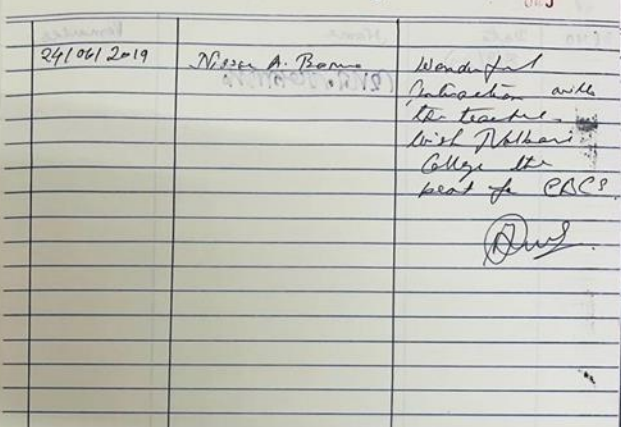 24/06/2019
Nissar A. Barua
Wonderful
Interaction with
the teachers.
Wish Nalbari
College the
best for CBCS.